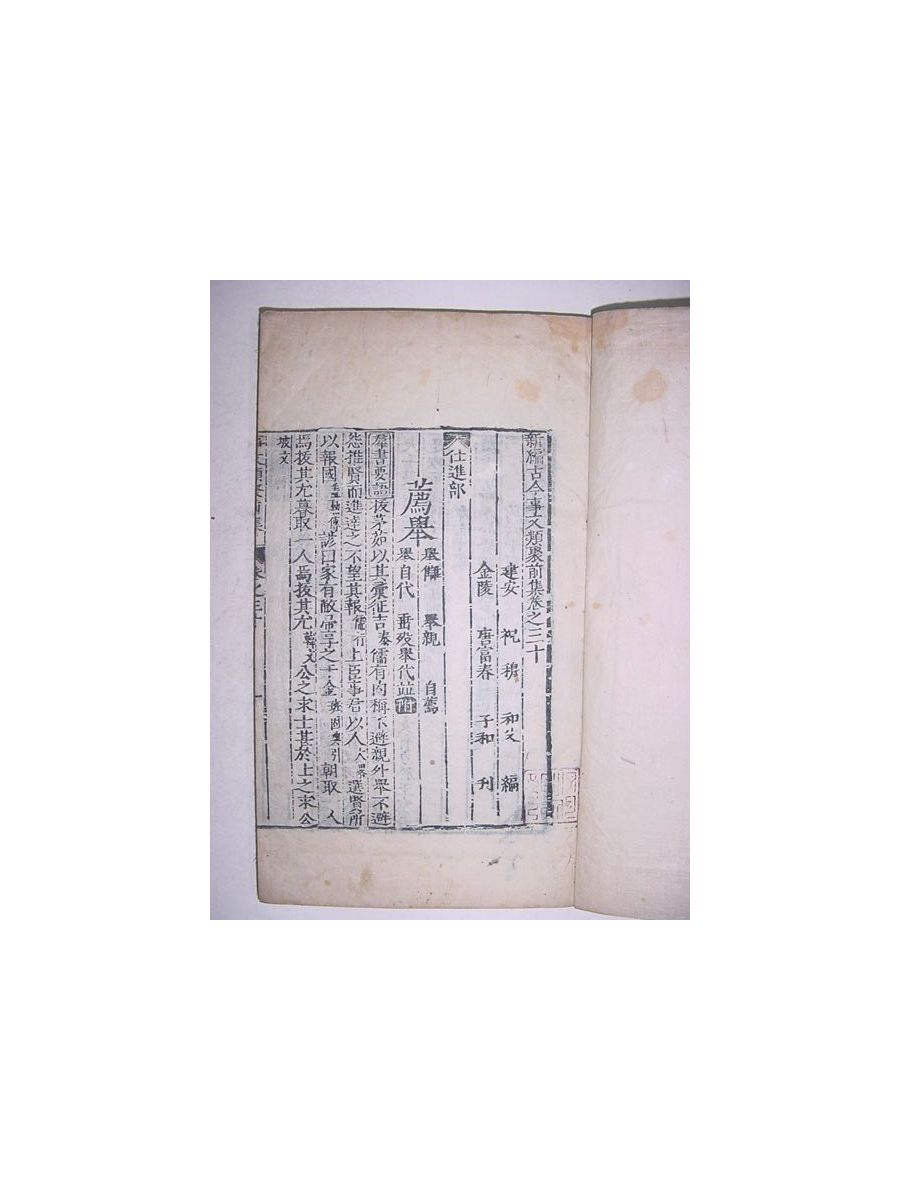 新編古今事文類聚前集卷之三十
建安 祝穆 和父 編
金陵 唐富春 子和 刊
仕進部
薦舉
舉讎 舉親 自薦
舉自代 垂歿舉代並附
羣書要語 拔茅茹以其彙征吉泰儒有内稱不避親外舉不避
怨推賢而進達之不望其報儒行上臣事君以人大畧選賢所
以報國 諺曰家有敝帚享之千金 朝取一人
焉拔其尤暮取一人焉拔其尤韓文公之求士甚於上之求公
坡文